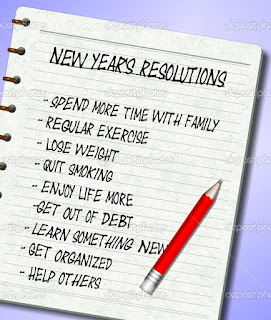 NEW YEAR'S RESOLUTIONS
- SPEND MORE TIME WITH FAMILY
- REGULAR EXERCISE
- LOSE WEIGHT
- QUIT SMOKING
- ENJOY LIFE MORE
-GET OUT OF DEBT
- LEARN SOMETHING NEW
- GET ORGANIZED
- HELP OTHERS